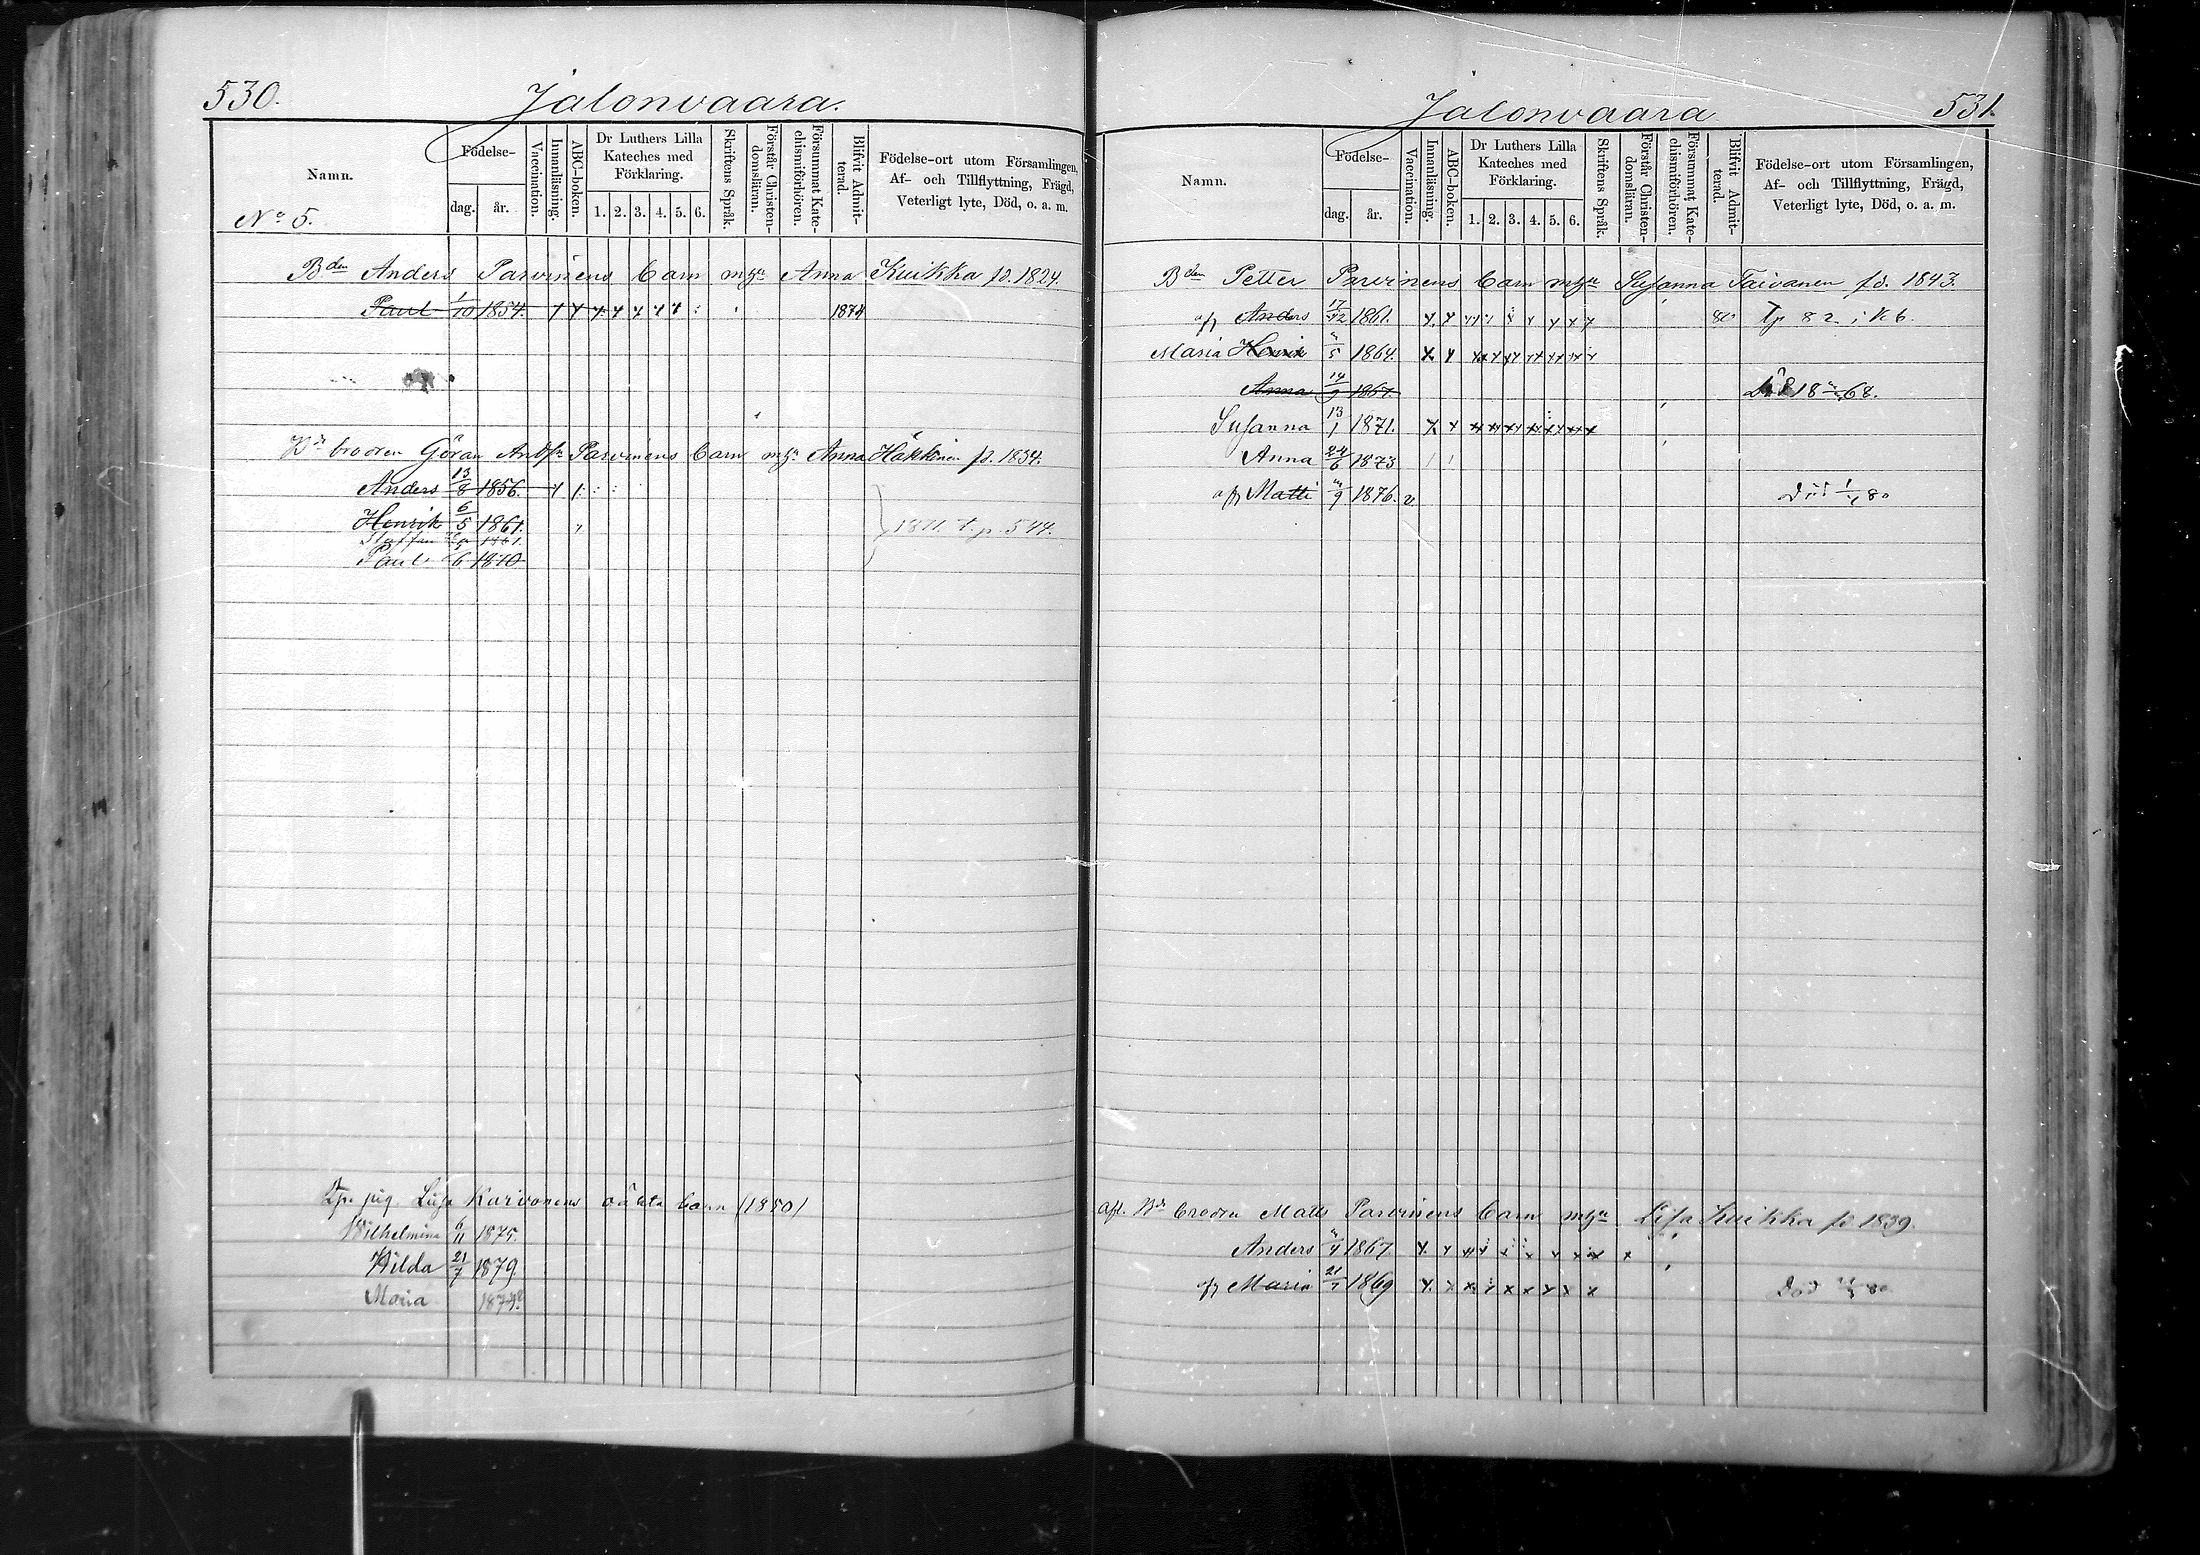 530.
Jalonvaara.
Namn.
Födelse-
dag.
år.
Vaccination.
Innanläsning.
ABC-boken.
Dr Luthers Lilla
Kateches med
Förklaring.
1. 2. 3. 4. 5. 6.
Skriftens Språk.
Förstår Christen-
domsläran.
Försummat Kate-
chismiförhören.
Blifvit Admit-
terad.
Födelse-ort utom Församlingen,
Af- och Tillflyttning, Frägd,
Veterligt lyte, Död, o. a. m.
No 5.
Bden Anders Parvinens barn m Anna Kuikka fd. 1824.
Paul 1/10 1854. 1874
broren Göran Parvinens barn m Anna Häkkinen fd. 1834.
Anders 13/8 1856.
Henrik 6/5 1861.
Staffan 1861.
Paul 6 1870
t. p. 544.
pig. Karvonens oäkta barn (1850)
Wilhelmina 6/11 1875.
Hilda 21/7 1879.
Maria
531.
Jalonvaara
Namn.
Födelse-
dag.
år.
Vaccination.
Innanläsning.
ABC-boken.
Dr Luthers Lilla
Kateches med
Förklaring.
1. 2. 3. 4. 5. 6.
Skriftens Språk.
Förstår Christen-
domsläran.
Försummat Kate-
chismiförhören.
Blifvit Admit-
terad.
Födelse-ort utom Församlingen,
Af- och Tillflyttning, Frägd,
Veterligt lyte, Död, o. a. m.
Bden Petter Parvinens barn m Susanna Taivanen fd. 1843.
Anders 17/12 1861. 80
Maria Henrik 5 1864.
Anna 14/9 1867. 68.
Susanna 13/1 1871.
Anna 24/6 1873
Matti 9 1876. Död 80
broren Matts Parvinens barn m Lisa Kuikka fd 1839.
Anders 4 1867
Maria 21/7 1869 Död 80